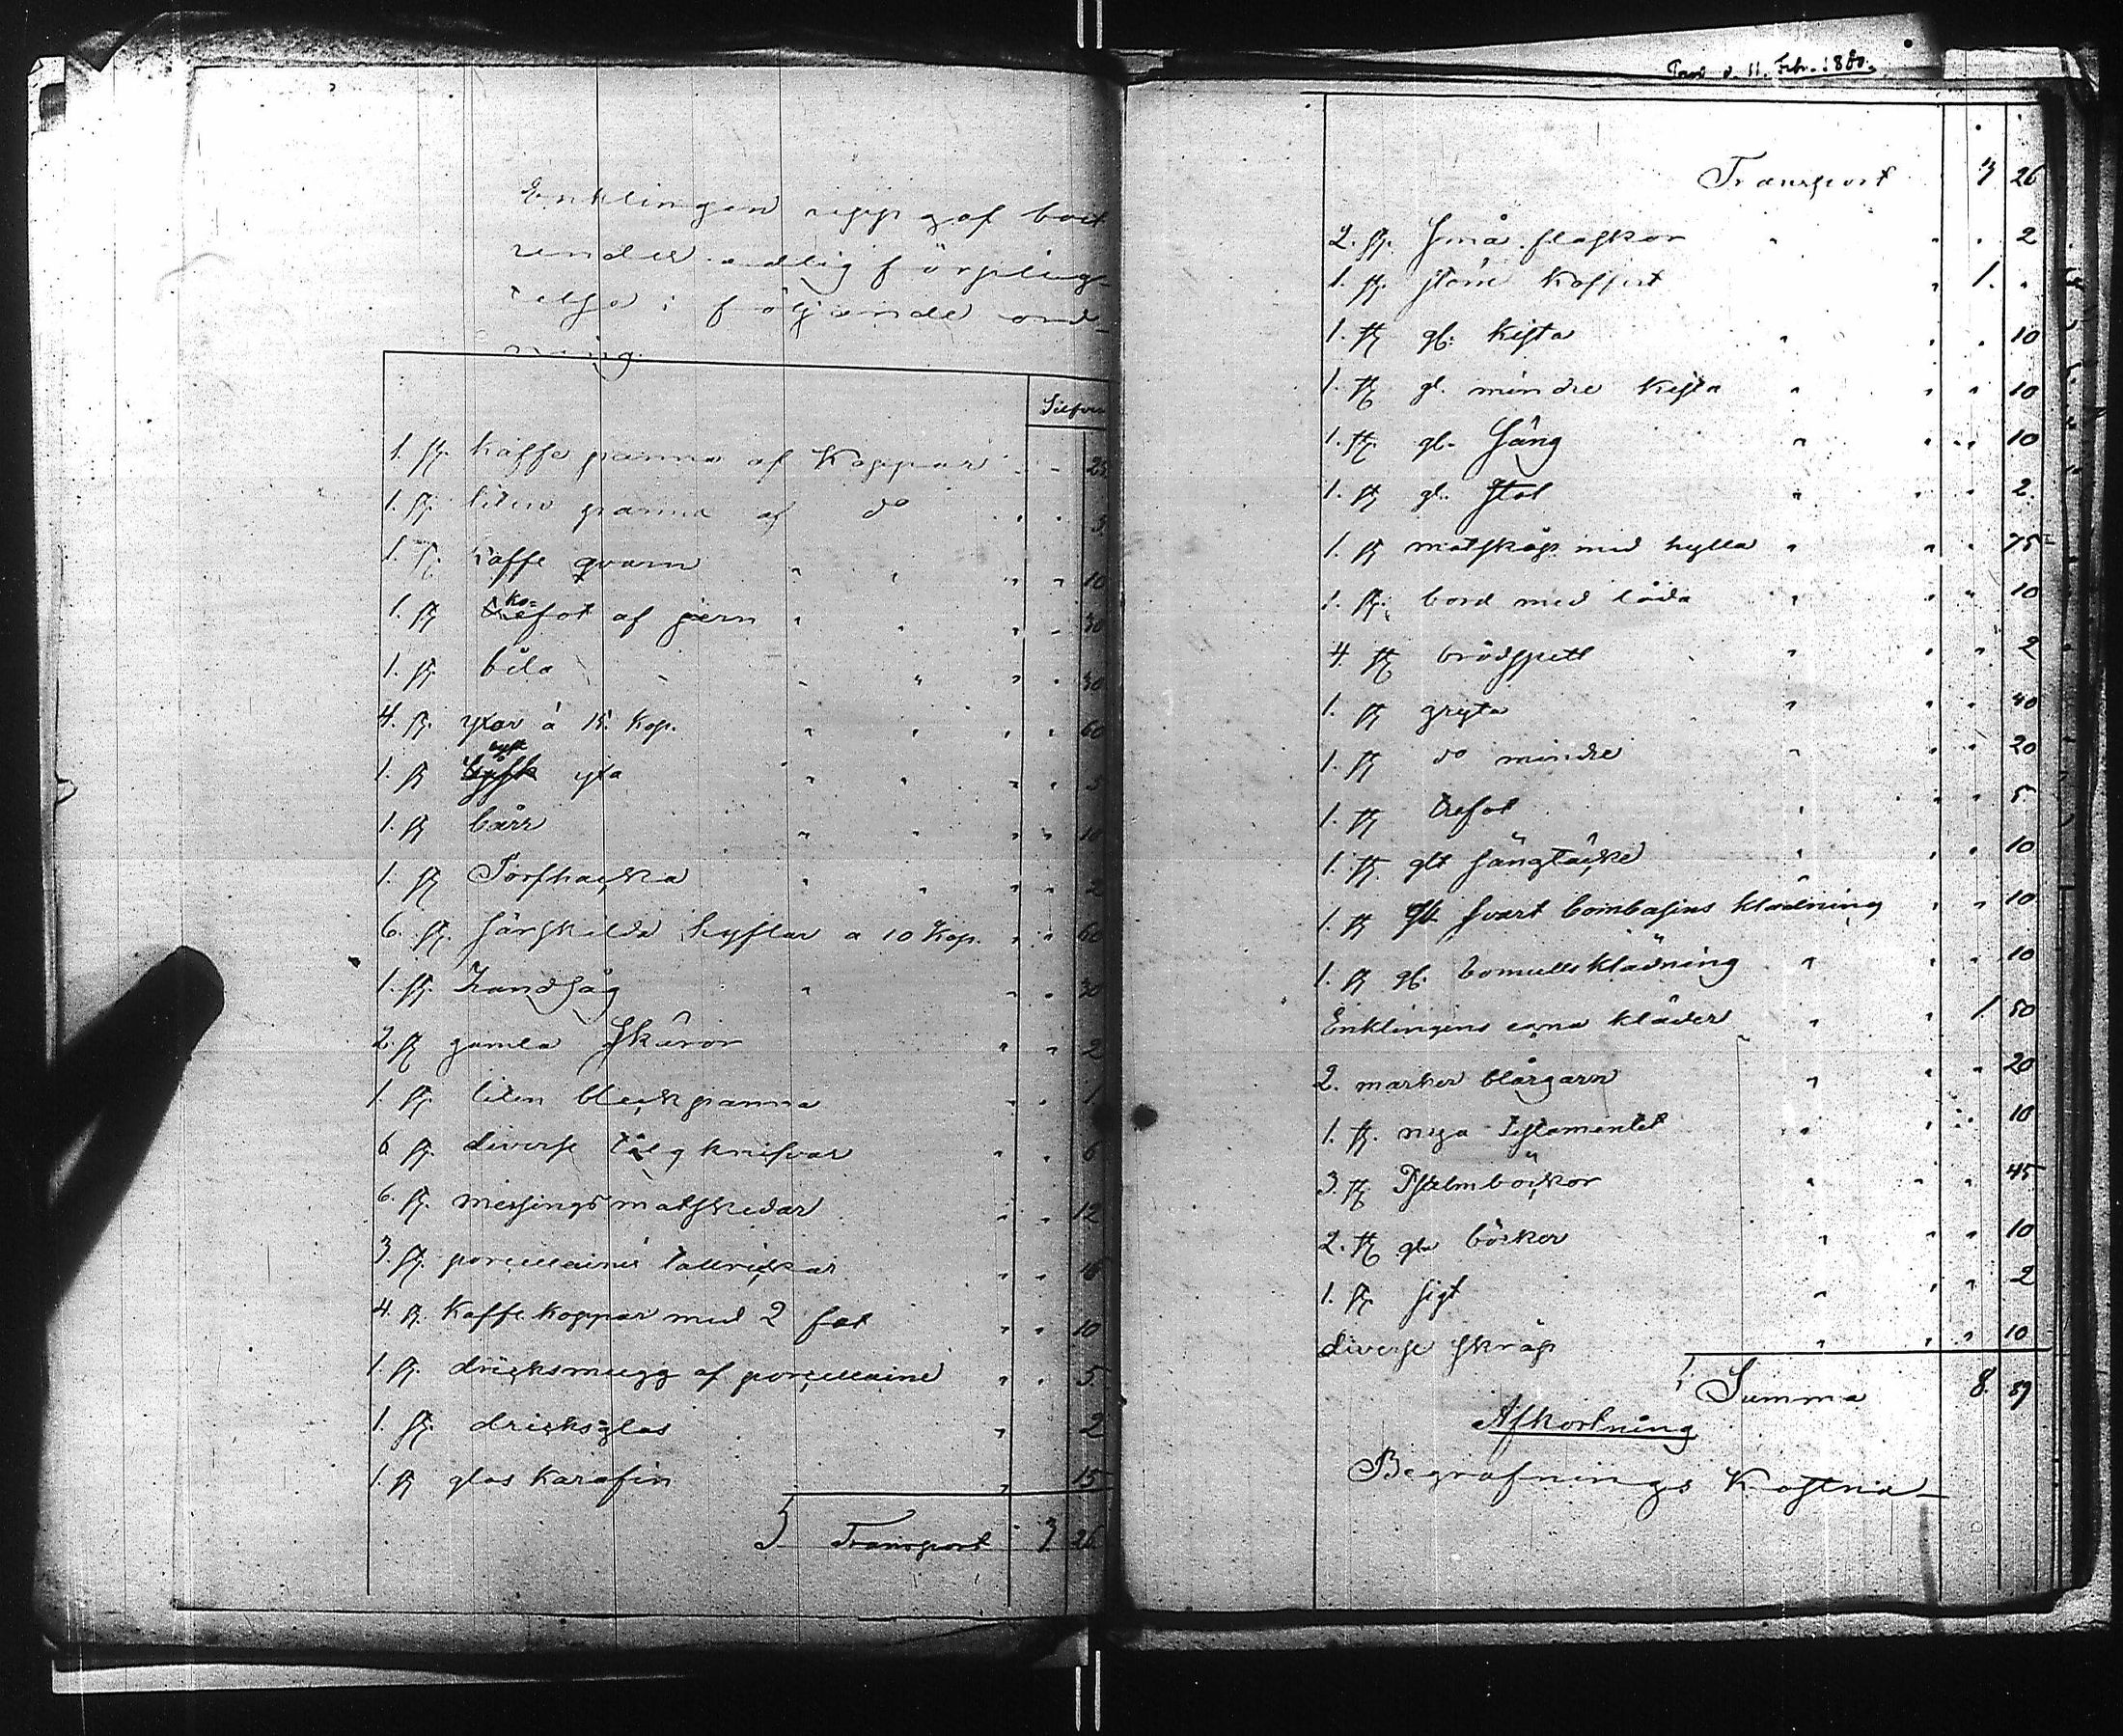 Enklingen uppgaf boet
under edlig förplig-
telse i följande ord-
ning.
Silfver
1. st. Kaffe panna af Koppar " " 25
1. st. liten panna af do " " 3
1. st. Kaffe qvarn " " 10
1. st. kofot af jern " " 30
1. st. bila " " 30
4. st. yxor à 15. Kop. " " 60
1. st. yxa " " 3
1. st. bårr " " 10
1. st. Torfhacka " " 2
6. st. särskilda hyflar a 10 Kop. " " 60
1. st. Handsåg " " 30
2. st. gamla skäror " " 2
1. st. liten bleckpanna " " 1
6 st. diverse tälg knifvar " " 6
6. st. messings matskedar " " 12
3. st. porcellaines tallrickar " " 15
4 st. Kaffe koppar med 2 fat " " 10
1 st. dricksmugg af porcellaine " " 5
1 st. dricksglas " 2
1. st. glas Karafin " 15
Transport 3 26
d. 11. Febr. 1880.
Transport 3 26
2. st. små flaskor " " 2
1. st. större Koffert " 1. "
1. st. gl: Kista " " 10
1. st. gl. mindre Kista " " 10
1. st. gl. säng " " 10
1. st. gl. stol " " 2.
1. st. matskåp med hylla " " 75
1. st. bord med låda " " 10
4 st. brödspett " " 2
1. st. gryta " " 40
1. st. do mindre " " 20
1. st. trefot " " 5
1. st. glt sängtäcke " " 10
1. st. glt svart bombasins klädning " " 10
1. st. gl. bomullsklädning " " 10
Enklingens egna kläder " 1 50
2. marker blårgarn " " 20
1. st. nya Testamentet " " 10
3. st. Psalmböckor " " 45
2. st. gla böcker " " 10
1. st. sigt " " 2
diverse skräp " " 10
Summa 8. 59
Afkortning
Begrafnings Kostna-